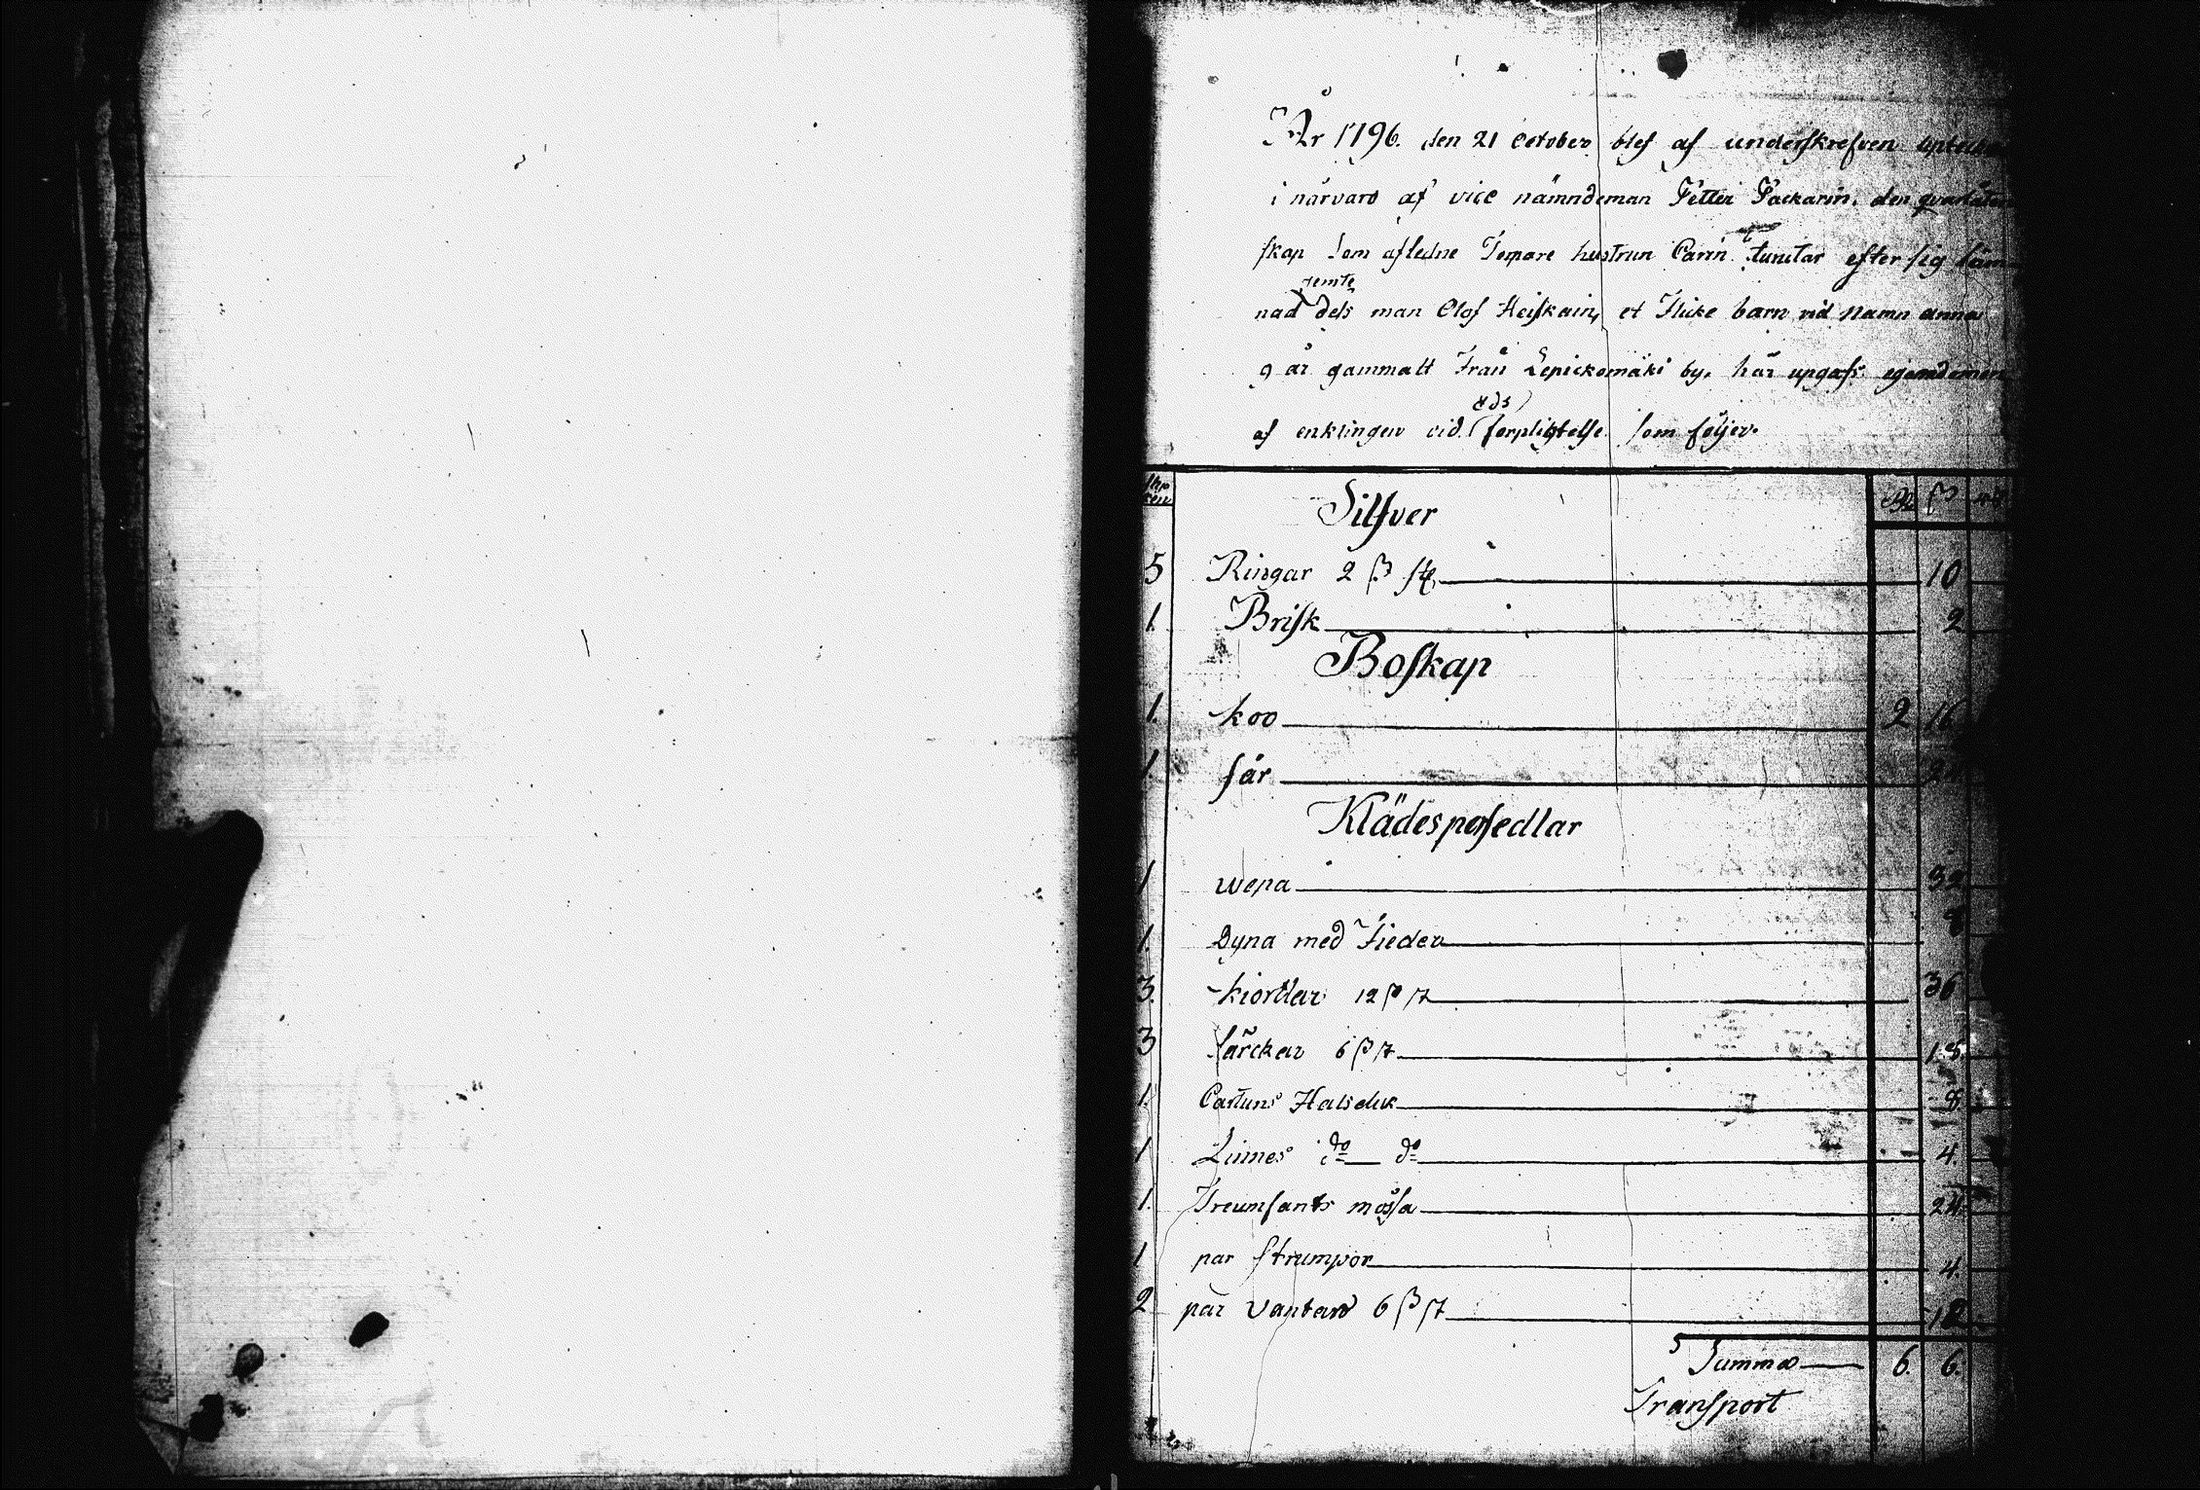 År 1796. den 21 October blef af underskrefven
i närvaro af vice nämndeman Petter Packarin. den
skap som afledne Torpare hustrun Carin turutar efter sig läm
nad jemte dels man Olof Heiskain, et Flicke barn vid Namn anna
9 år gammalt Från Lepickomäki by, har upgafs egendomen
af enklingen vid eds förpligtelse som följer.
Silfver
5 Ringar 2 β st. 10
1. Brisk 2
Boskap
1. koo 2 16
1. får
Klädespersedlar
1 wepa 32
1. Dyna med Fieder 8
3. kiortlar 12 β st 36
3 särckar 6 β st 18.
1. Cartuns Halsduk 8.
1 Linnes do do 4.
1. Treumfants mössa 24.
1 par strumpor 4.
2 par Vantar 6 β st 12
Summa 6. 6.
Transport